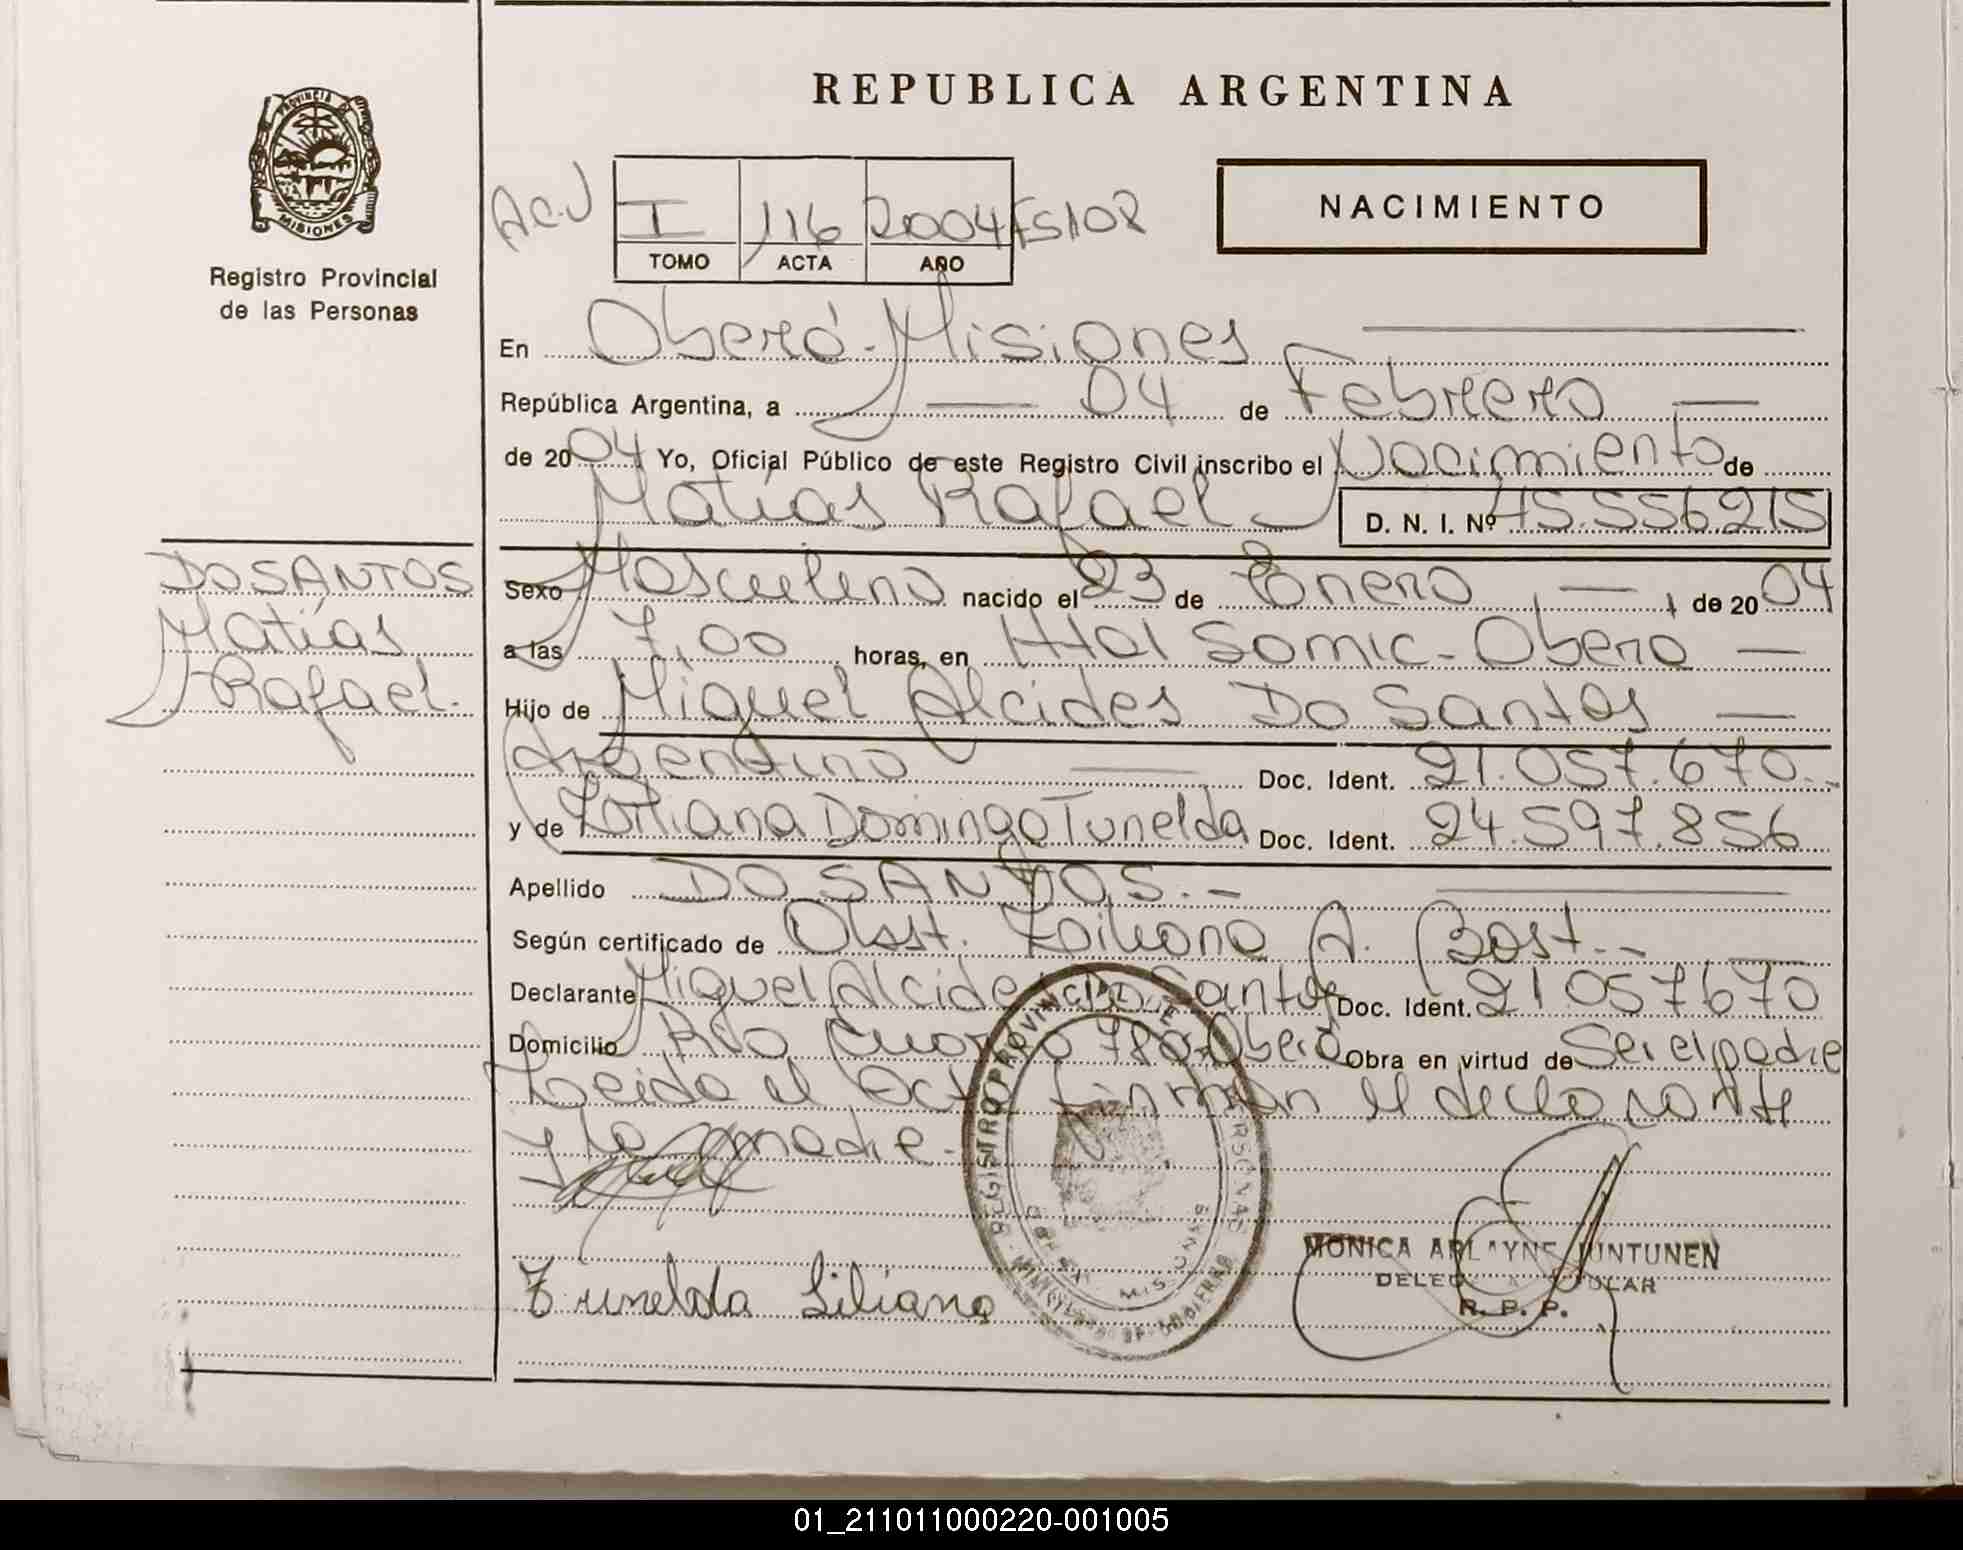 REPUBLICA ARGENTINA
PROVINCIA DE MISIONES
Registro Provincial
de las Personas
I 116 2004 Fs 102
TOMO ACTA AÑO
NACIMIENTO
En Oberá-Misiones
República Argentina, a 04 de Febrero
de 2004 Yo, Oficial Público de este Registro Civil inscribo el Nacimiento de
Matías Rafael D. N. I. Nº 45.556215
DO SANTOS
Matías
Rafael.
Sexo Masculino nacido el 23 de Enero, de 2004
a las 7,00 horas, en Htal Samic-Oberá
Hijo de Miguel Alcides Do Santos
Argentino Doc. Ident. 21.057.670.-
y de Liliana Dominga Tunelda Doc. Ident. 24.597.856
Apellido DO SANTOS.-
Según certificado de Obst. A. Bast.-
Declarante Miguel Alcides Do Santos Doc. Ident. 21 057670
Domicilio Río Cuarto 780-Oberá Obra en virtud de Ser el padre
Leida el acta firman el declarante
y la madre.-
Tunelda Liliana
REGISTRO PROVINCIAL DE PERSONAS
OBERA MISIONES
MINISTERIO DE GOBIERNO
MONICA ARLAYNE JUNTUNEN
DELEGADA TITULAR
R. P. P.
01_211011000220-001005